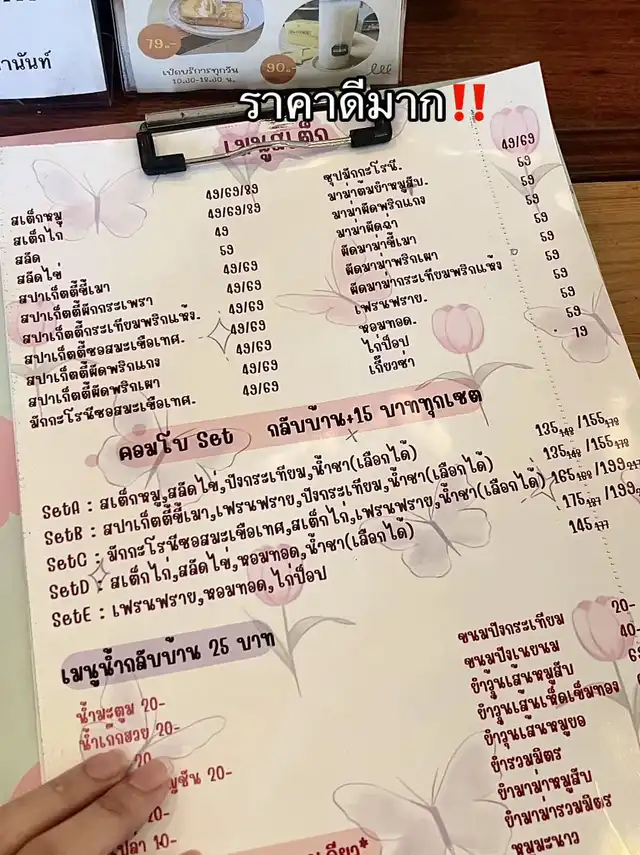 านันท์
79.-
เปิดบริการทุกวัน
10.30-19.30 น.
90.-
ราคาดีมาก‼️
เมนูสเต็ก
สเต็กหมู 49/69/89
สเต็กไก่ 49/69/89
สลัด 49
สลัดไข่ 59
สปาเก็ตตี้ขี้เมา 49/69
สปาเก็ตตี้ผัดกระเพรา 49/69
สปาเก็ตตี้กระเทียมพริกแห้ง. 49/69
สปาเก็ตตี้ซอสมะเขือเทศ. 49/69
สปาเก็ตตี้ผัดพริกแกง 49/69
สปาเก็ตตี้ผัดพริกเผา 49/69
มักกะโรนีซอสมะเขือเทศ. 49/69
ซุปมักกะโรนี. 49/69
มาม่าต้มยำหมูสับ. 59
มาม่าผัดพริกแกง 59
มาม่าผัดฉ่า 59
ผัดมาม่าขี้เมา 59
ผัดมาม่าพริกเผา 59
ผัดมาม่ากระเทียมพริกแห้ง 59
เฟรนฟราย. 59
หอมทอด. 59
ไก่ป๊อป 59
เกี๊ยวซ่า 79
คอมโบ Set กลับบ้าน+15 บาททุกเซต
SetA : สเต็กหมู,สลัดไข่,ปังกระเทียม,น้ำชา(เลือกได้) 135148/155178
SetB : สปาเก็ตตี้ขี้เมา,เฟรนฟราย,ปังกระเทียม,น้ำชา(เลือกได้) 135148/155178
SetC : มักกะโรนีซอสมะเขือเทศ,สเต็กไก่,เฟรนฟราย,น้ำชา(เลือกได้) 165188/199217
SetD : สเต็กไก่,สลัดไข่,หอมทอด,น้ำชา(เลือกได้) 175187/199
SetE : เฟรนฟราย,หอมทอด,ไก่ป๊อป 145177
เมนูน้ำกลับบ้าน 25 บาท
น้ำมะตูม 20-
น้ำเก๊กฮวย 20-
20
ัญชัน 20-
20-
ปล่า 10-
ขนมปังกระเทียม 20-
ขนมปังเนยนม 40-
ยำวุ้นเส้นหมูสับ
ยำวุ้นเส้นเห็ดเข็มทอง
ยำวุ้นเส้นหมูยอ
ยำรวมมิตร
ยำมาม่าหมูสับ
ยำมาม่ารวมมิตร
หมูมะนาว